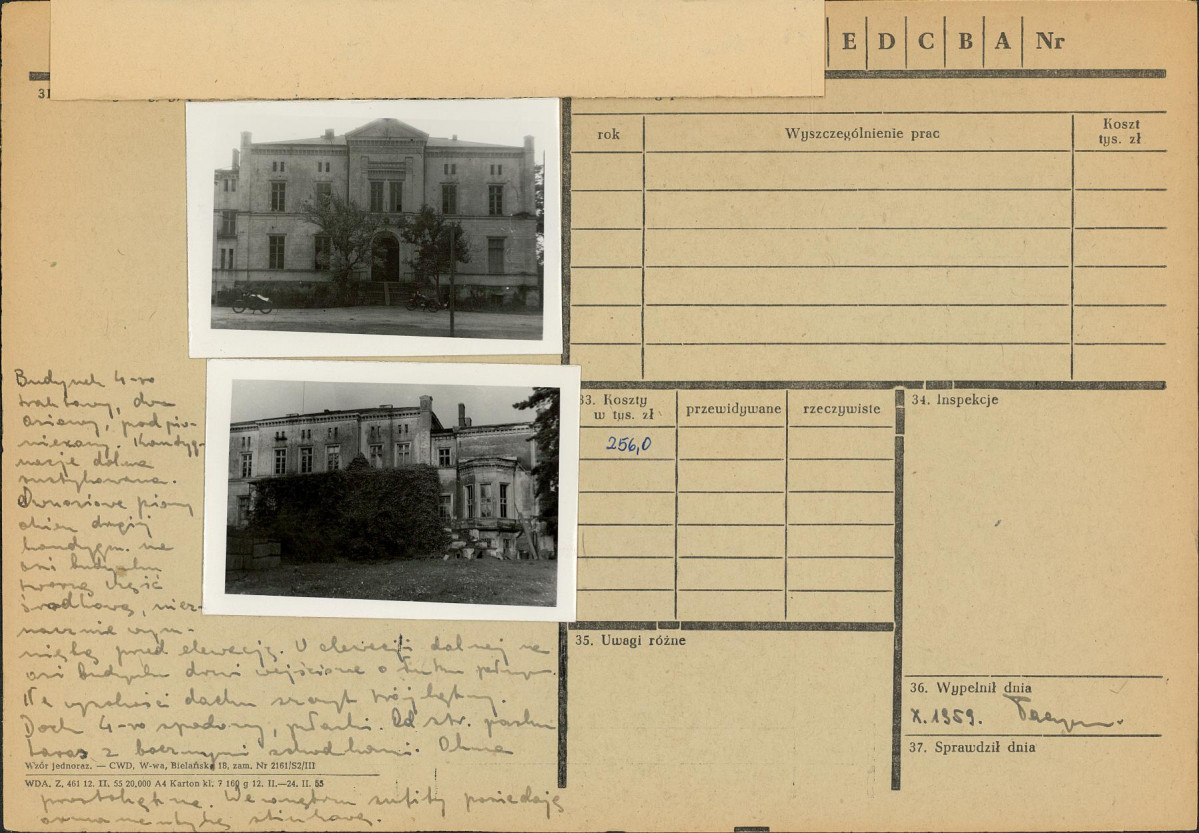 E D C B A Nr
31
rok
Wyszczególnienie prac
Koszt
tys. zł
33. Koszty
w tys. zł
przewidywane
rzeczywiste
256,0
34. Inspekcje
35. Uwagi różne
36. Wypełnił dnia
X.1959.
37. Sprawdził dnia
Budynek 4-ro
traktowy, dwu
osiowy, podpiw-
niczony, Kondyg-
nacje dolna
Dwuosiowe piony
okien drugiej
kondygn. na
osi budynku
tworzą część
środkową, niez-
nacznie wysu-
niętą przed elewację. W elewacji dolnej na
osi budynku drzwi wejściowe o łuku pełnym.
Na wysokości dachu szczyt trójkątny.
Dach 4-ro spadowy, płaski. Od str. parku
taras z bocznymi schodkami. Okna
Wzór jednoraz. — CWD, W-wa, Bielańska 18, zam. Nr 2161/S2/III
WDA. Z. 461 12. II. 55 20,000 A4 Karton kl. 7 160 g 12. II.—24. II. 55
prostokątne. Wewnątrz sufity posiadają
ornamentykę stiukową.